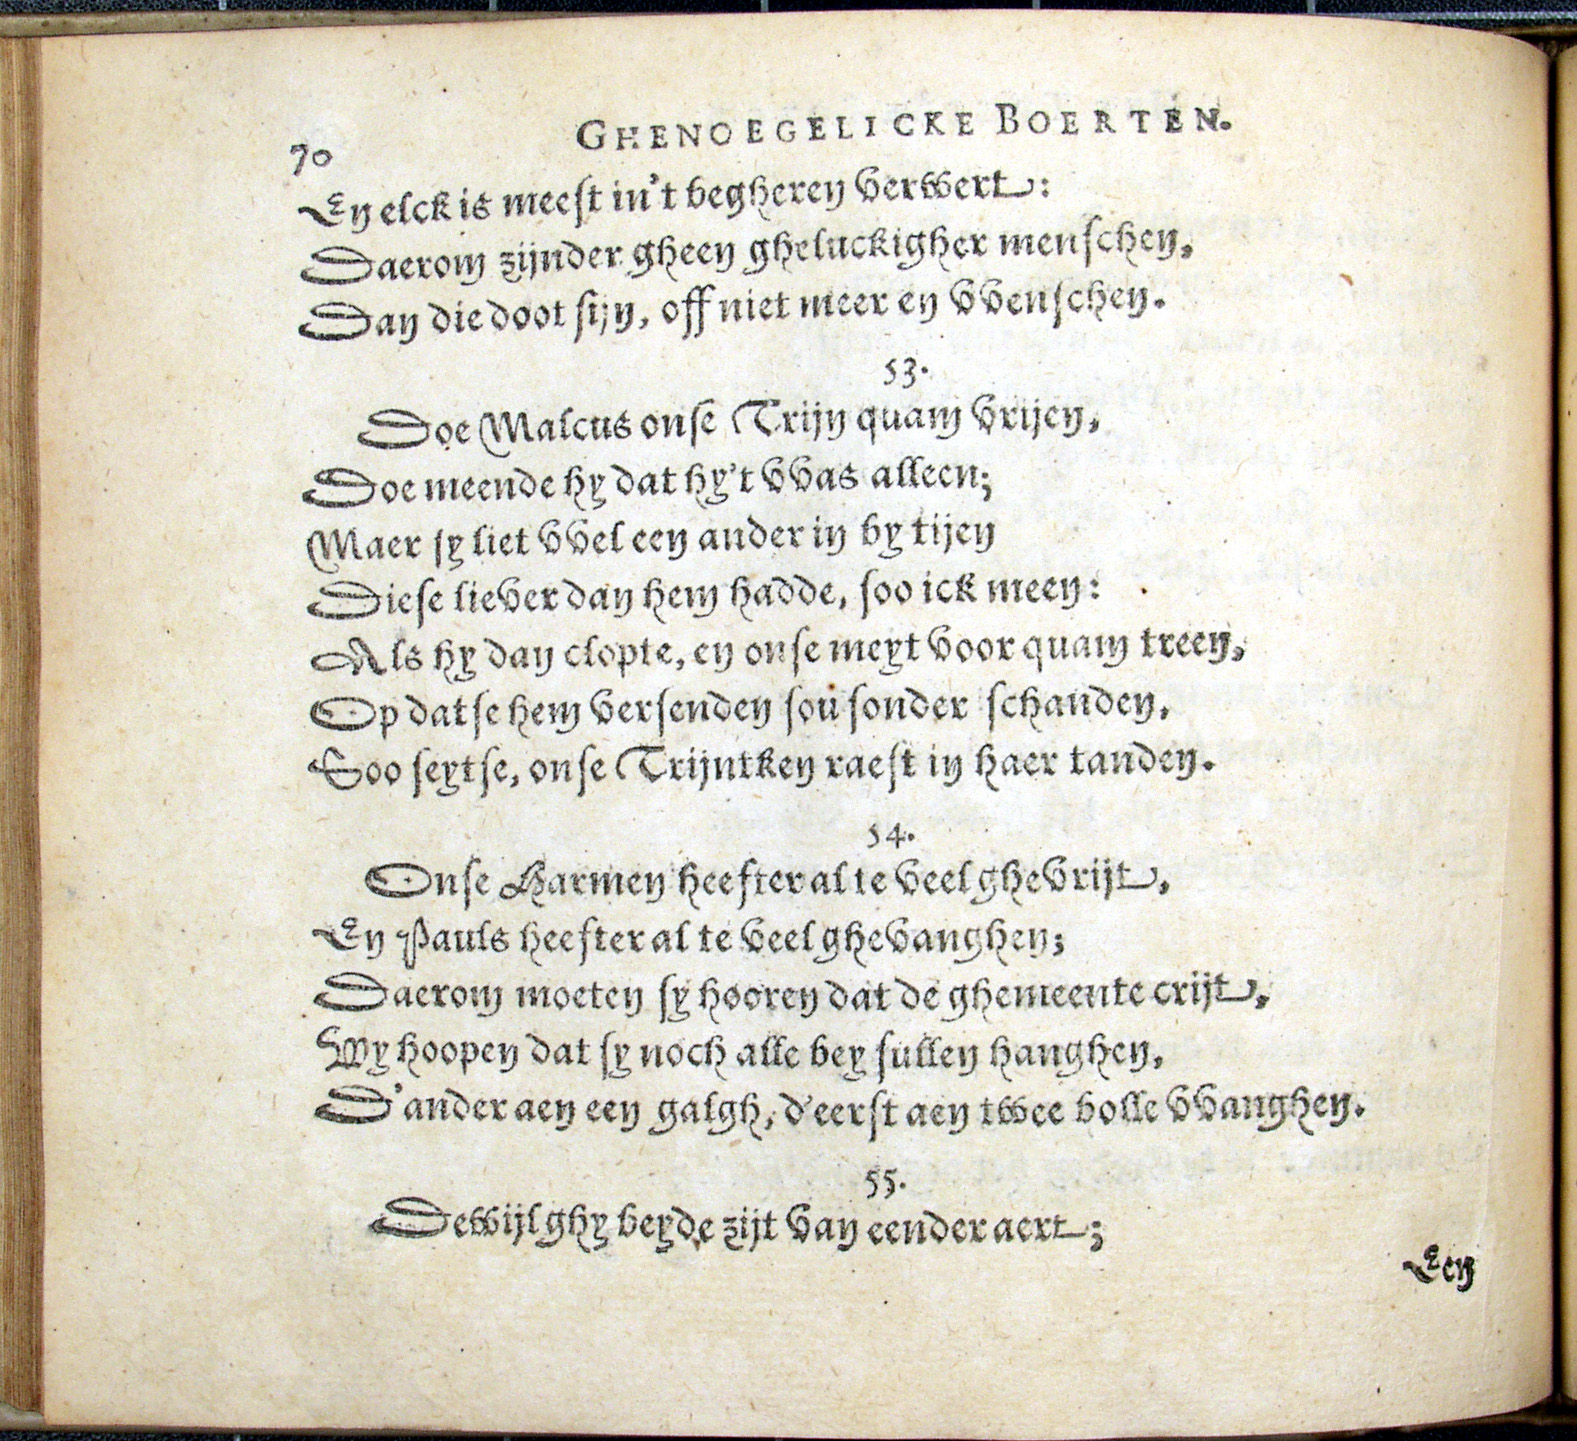 70
GHENOEGELICKE BOERTEN.
En elck is meest in't begheren verwert:
Daerom zijnder gheen gheluckigher menschen,
Dan die doot sijn, off niet meer en vvenschen.
53.
Doe Malcus onse Trijn quam vrijen,
Doe meende hy dat hy't vvas alleen;
Maer sy liet vvel een ander in by tijen
Diese liever dan hem hadde, soo ick meen:
Als hy dan clopte, en onse meyt voor quam treen,
Op datse hem versenden sou sonder schanden,
Soo seytse, onse Trijntken raest in haer tanden.
54.
Onse Harmen heefter al te veel ghevrijt,
En Pauls heefter al te veel ghevanghen;
Daerom moeten sy hooren dat de ghemeente crijt,
Wy hoopen dat sy noch alle bey sullen hanghen,
D'ander aen een galgh, d'eerst aen twee bolle vvanghen.
55.
Dewijl ghy beyde zijt van eender aert;
Een